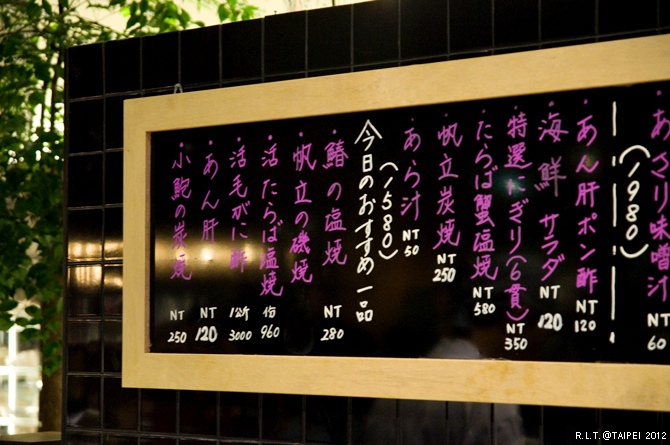 ・あさり味噌汁 NT 60
(1980)
・あん肝ポン酢 NT 120
・海鮮サラダ NT 120
・特選にぎり(6貫) NT 350
・たらば蟹塩焼 NT 580
・帆立炭焼 NT 250
・あら汁 NT 50
(1580)
今日のおすすめ一品
・鰆の塩焼 NT 280
・帆立の磯焼
・活たらば塩焼 份 960
・活毛がに酢 1公斤 3000
・あん肝 NT 120
・小鮑の炭焼 NT 250
R.L.T.@TAIPEI 2012